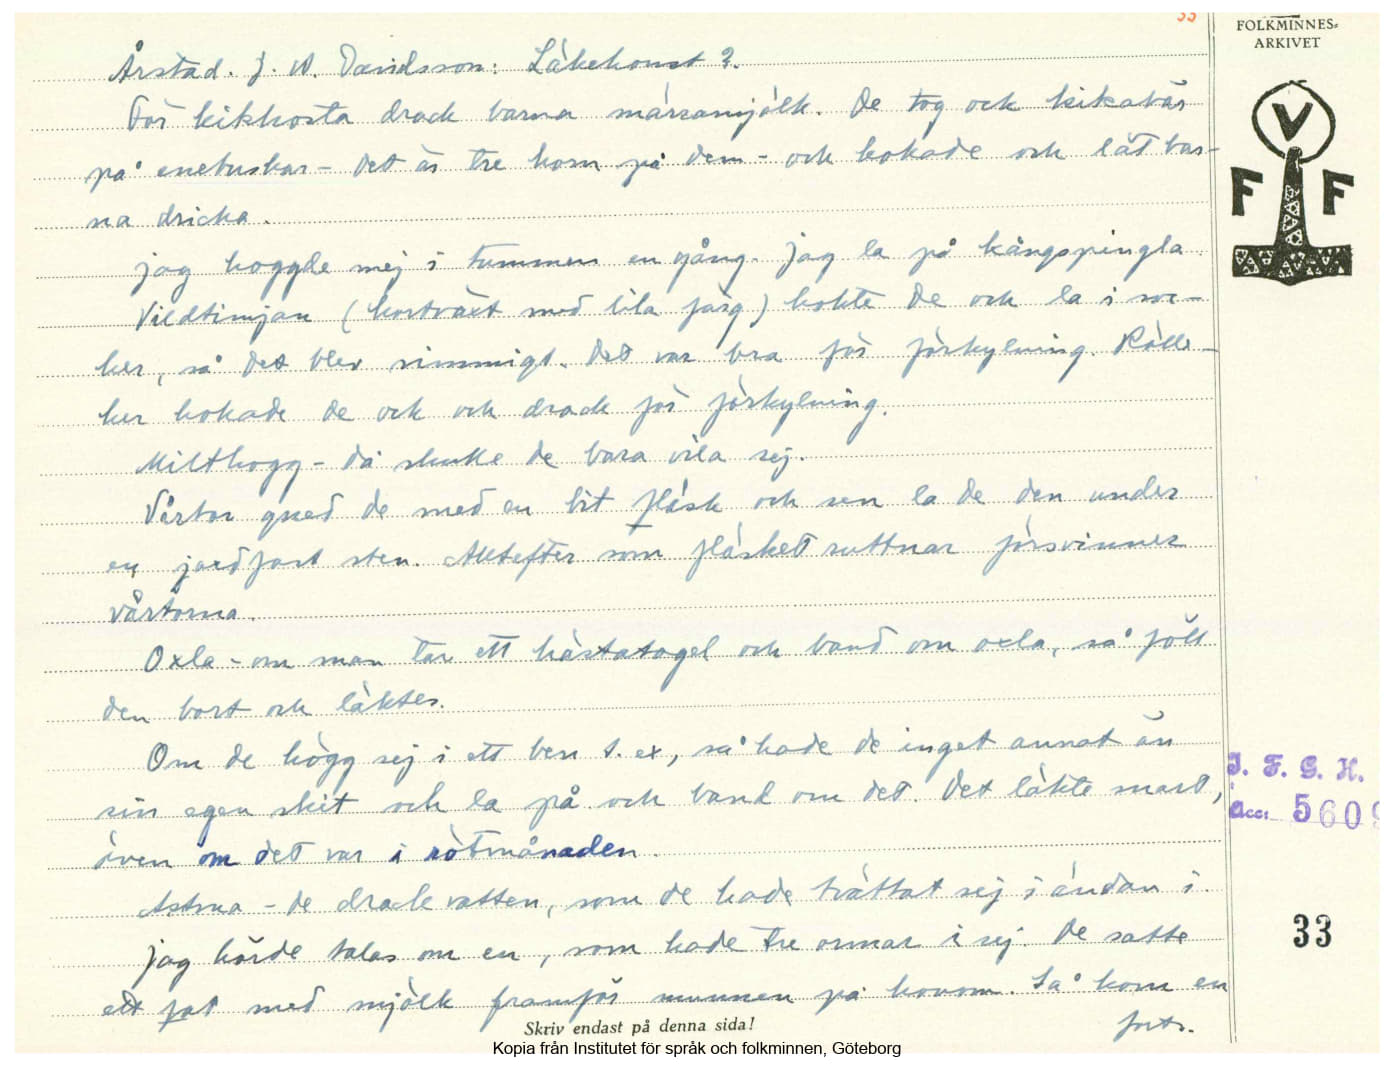 33
FOLKMINNES-
ARKIVET
V
F F
Årstad. J. A. Davidsson: Läkekonst 2.
För kikhosta drack barna märramjölk. De tog och kikabär
på enebuskar - det är tre horn på dem - och kokade och lät bar-
na dricka.
Jag hoggde mej i tummen en gång. Jag la på kångspingla.
Vildtimjan (kortväxt med lila färg) kokte de och la i soc-
ker, så det blev simmigt. Det var bra för förkylning. Rölle-
ker kokade de ock och drack för förkylning.
Milthogg - då skulle de bara vila sej.
Vårtor gned de med en bit fläsk och sen la de den under
en jordfast sten. Alltefter som fläsket ruttnar försvinner
vårtorna.
Oxla - om man tar ett hästatagel och band om oxla, så föll
den bort och läktes.
Om de högg sej i ett ben t. ex, så hade de inget annat än
sin egen skit och la på och band om det. Det läkte snart,
även om det var i rötmånaden.
Astma - de drack vatten, som de hade tvättat sej i ändan i.
Jag hörde talas om en, som hade tre ormar i sej. De satte
ett fat med mjölk framför munnen på honom. Så kom en
forts.
I. F. G. H.
Acc: 5609
33
Skriv endast på denna sida!
Kopia från Institutet för språk och folkminnen, Göteborg